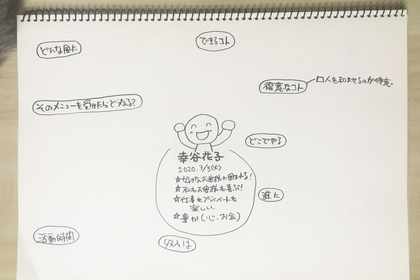 どんな風に
できるコト
得意なコト
人を和ませるのが得意。
そのメニューを受けたらどうなる?
どこでやる
幸谷花子
2020.3/3(火)
☆好きなお客様に囲まれる!
☆私もお客様も喜ぶ!
☆仕事もプライベートも
楽しい
☆豊か(心、お金)
誰に
活動時間
収入は